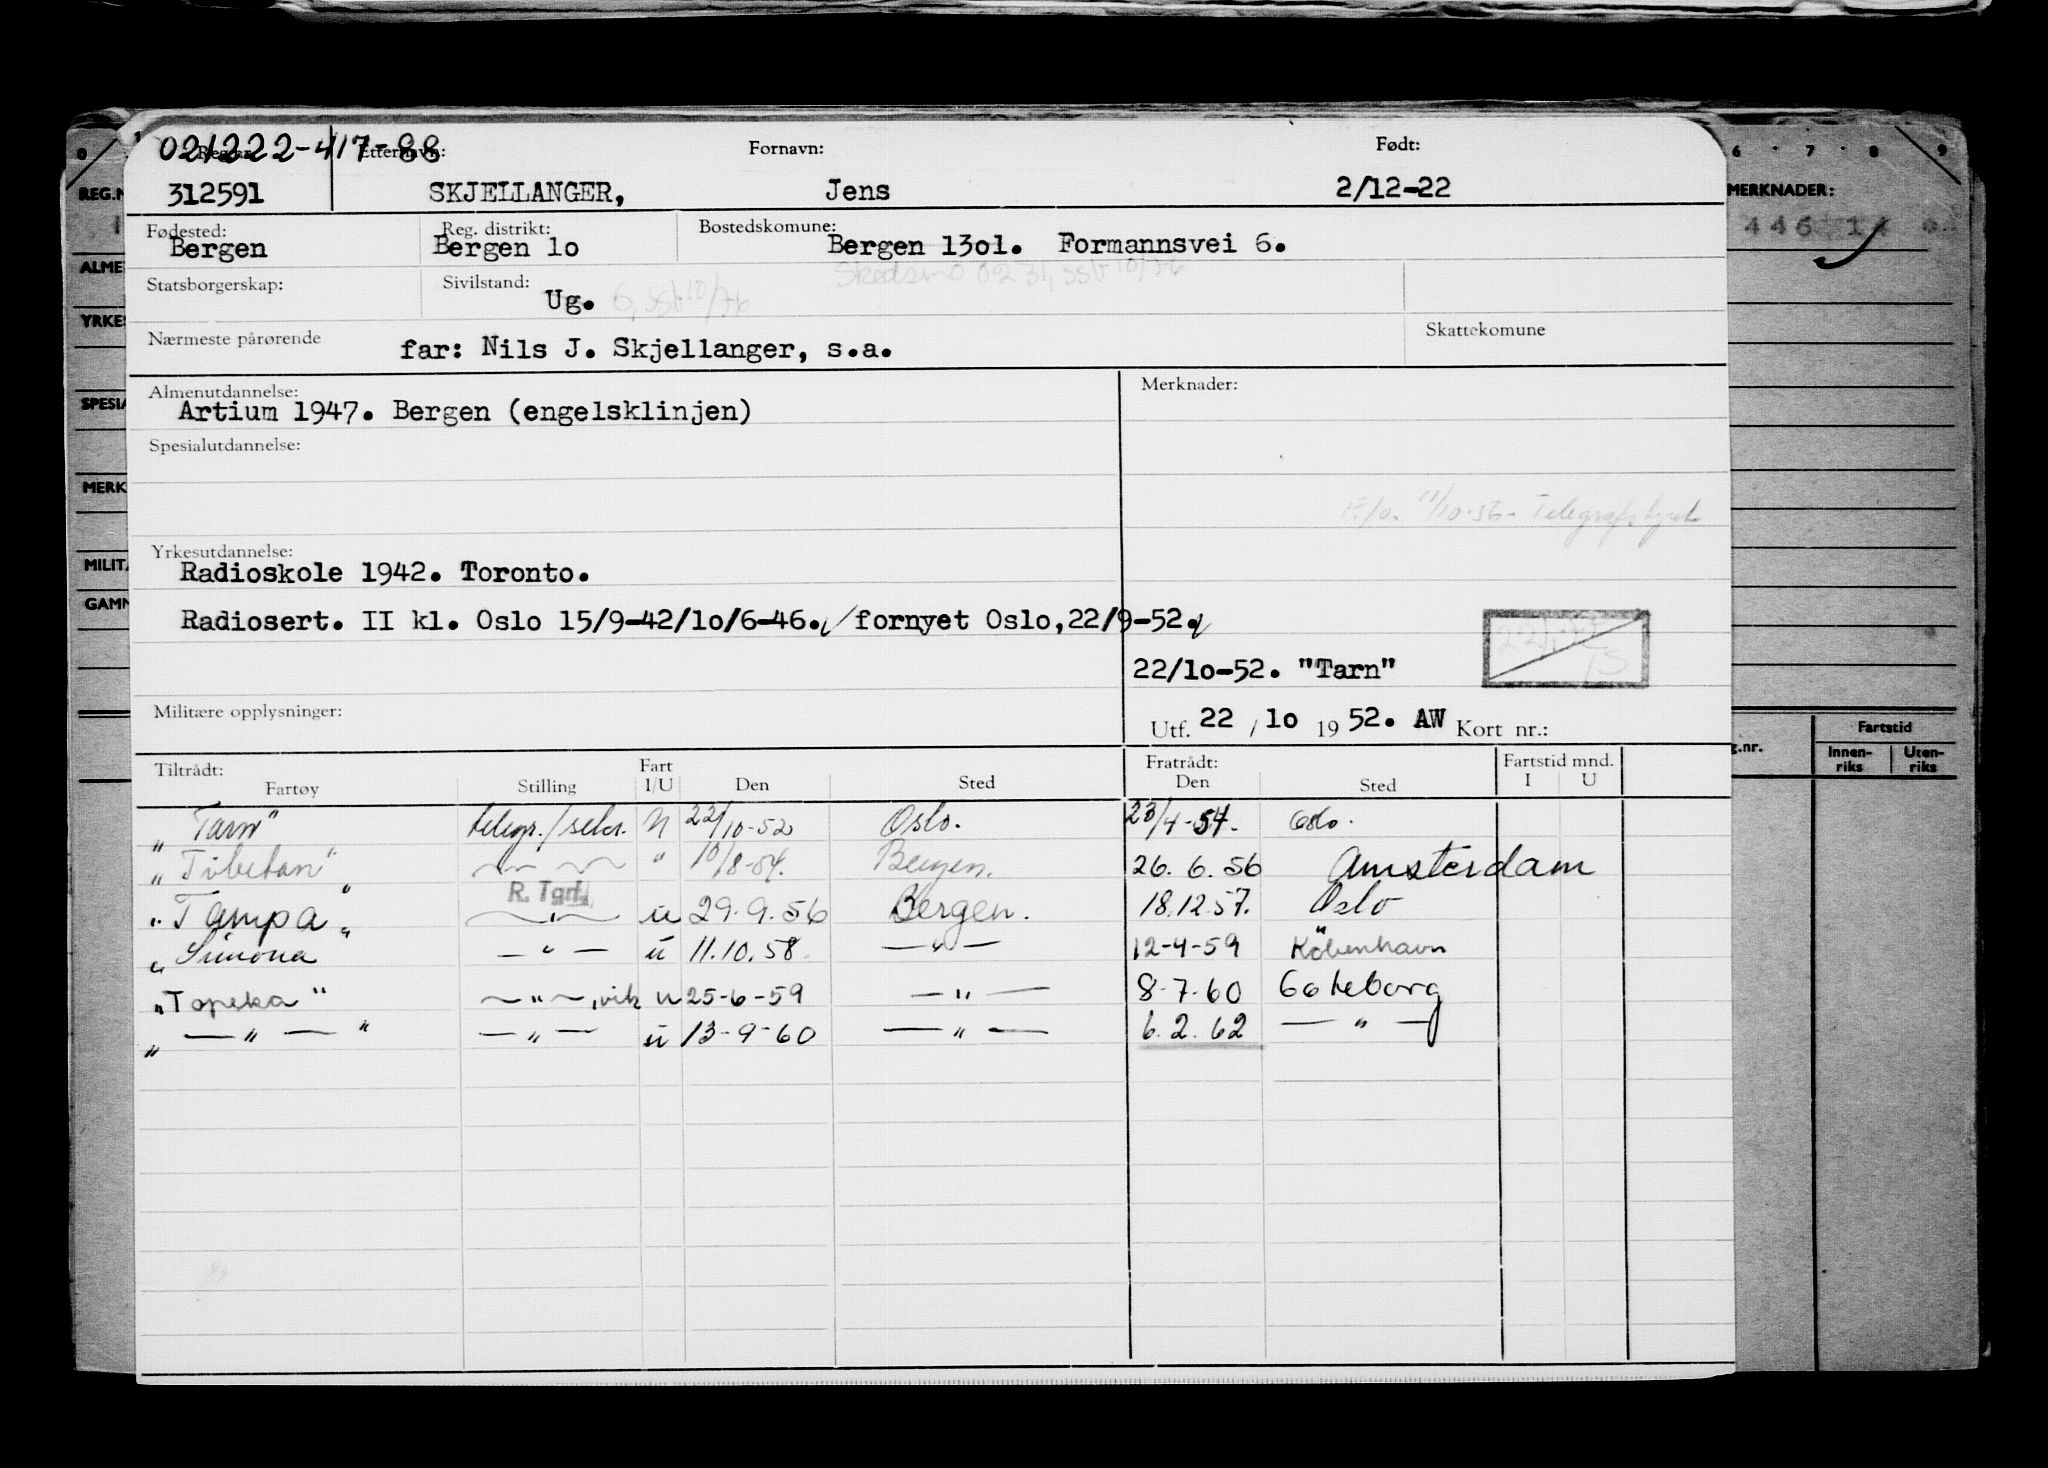 021222-417-88
Reg.nr. Etternavn: Fornavn: Født:
312591 SKJELLANGER, Jens 2/12-22
Fødested: Reg. distrikt: Bostedskommune:
Bergen Bergen 1o Bergen 13o1. Formannsvei 6.
Skedsmo 0231, ssb 10/76
Statsborgerskap: Sivilstand: Ug. 6, ssb 10/76
Nærmeste pårørende far: Nils J. Skjellanger, s.a. Skattekomune
Almenutdannelse: Merknader:
Artium 1947. Bergen (engelsklinjen)
Spesialutdannelse:
11/10-56. Telegrafstyret
Yrkesutdannelse:
Radioskole 1942. Toronto.
Radiosert. II kl. Oslo 15/9-42/1o/6-46. / fornyet Oslo,22/9-52.
22/1o-52. "Tarn"
Militære opplysninger: Utf. 22 / 1o 19 52. AW Kort nr.:
Tiltrådt: Fart Fratrådt: Fartstid mnd.
Fartøy Stilling I/U Den Sted Den Sted I U
"Tarn" telegr./sekr. U 22/10-52 Oslo. 23/4-54. Oslo.
"Tibetan" " 10/8-54. Bergen. 26.6.56 Amsterdam
R. Tgrf.
"Tampa" " u 29.9.56 Bergen. 18.12.57. Oslo
"Simona" — " — u 11.10.58. — " — 12-4-59 Köbenhavn
"Topeka" — " —, vik u 25-6-59 — " — 8-7-60 Göteborg
" — " — " — " — u 13-9-60 — " — 6.2.62 — " —
REG.N
MERKNADER:
MERK
g.nr. Fartstid
Innen-riks Uten-riks
6 7 8 9